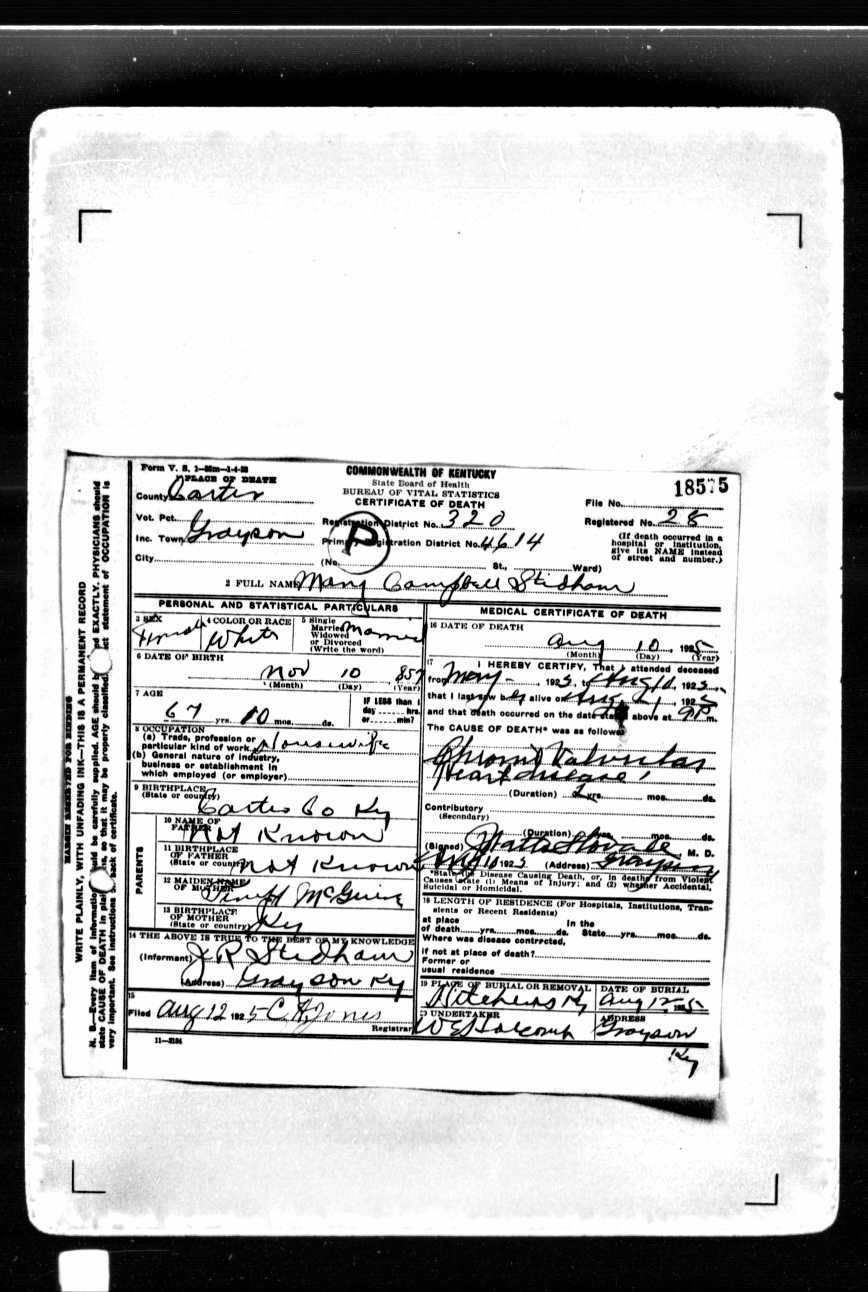 Form V. S. 1-
COMMONWEALTH OF KENTUCKY
State Board of Health
BUREAU OF VITAL STATISTICS
CERTIFICATE OF DEATH
18575
PLACE OF DEATH
County Carter
File No.
Vot. Pct.
Registration District No. 320
Registered No. 28
Inc. Town Grayson
Primary Registration District No. 4614
(If death occurred in a hospital or institution, give its NAME instead of street and number.)
City
(No. St., Ward)
P
2 FULL NAME Mary Campbell Stidham
PERSONAL AND STATISTICAL PARTICULARS
3 SEX Female
4 COLOR OR RACE White
5 Single Married Widowed or Divorced (Write the word) Married
6 DATE OF BIRTH
Nov 10 857
(Month) (Day) (Year)
7 AGE
67 yrs. 10 mos. ds.
IF LESS than 1 day hrs. or min?
8 OCCUPATION
(a) Trade, profession or particular kind of work Housewife
(b) General nature of industry, business or establishment in which employed (or employer)
9 BIRTHPLACE
(State or country) Carter Co Ky
PARENTS
10 NAME OF FATHER Not Known
11 BIRTHPLACE OF FATHER (State or country) Not Known
12 MAIDEN NAME OF MOTHER McGuire
13 BIRTHPLACE OF MOTHER (State or country) Ky
14 THE ABOVE IS TRUE TO THE BEST OF MY KNOWLEDGE
(Informant) J R Stidham
(Address) Grayson Ky
15
Filed Aug 12 1925 C A Jones
Registrar
11—3184
MEDICAL CERTIFICATE OF DEATH
16 DATE OF DEATH
Aug 10, 1925
(Month) (Day) (Year)
17 I HEREBY CERTIFY, That I attended deceased
from May, 192 to Aug 10, 192
that I last saw her alive on Aug, 192
and that death occurred on the date stated above at 9 P m.
The CAUSE OF DEATH* was as follows:
Chronic Valvular
Heart disease
(Duration) 2 yrs. mos. ds.
Contributory
(Secondary)
(Duration) yrs. mos. ds.
(Signed) Stovall M. D.
Aug 10 192 (Address) Grayson
*State the Disease Causing Death, or, in deaths from Violent Causes state (1) Means of Injury; and (2) whether Accidental, Suicidal or Homicidal.
18 LENGTH OF RESIDENCE (For Hospitals, Institutions, Transients or Recent Residents)
At place of death yrs. mos. ds. In the State yrs. mos. ds.
Where was disease contracted,
if not at place of death?
Former or usual residence
19 PLACE OF BURIAL OR REMOVAL Hitchins Ky
DATE OF BURIAL Aug 12, 1925
UNDERTAKER W E Holcomb
ADDRESS Grayson
Ky
MARGIN RESERVED FOR BINDING
WRITE PLAINLY, WITH UNFADING INK—THIS IS A PERMANENT RECORD
N. B.—Every item of information should be carefully supplied. AGE should be EXACTLY. PHYSICIANS should
state CAUSE OF DEATH in plain so that it may be properly classified. statement of OCCUPATION is
very important. See instructions back of certificate.